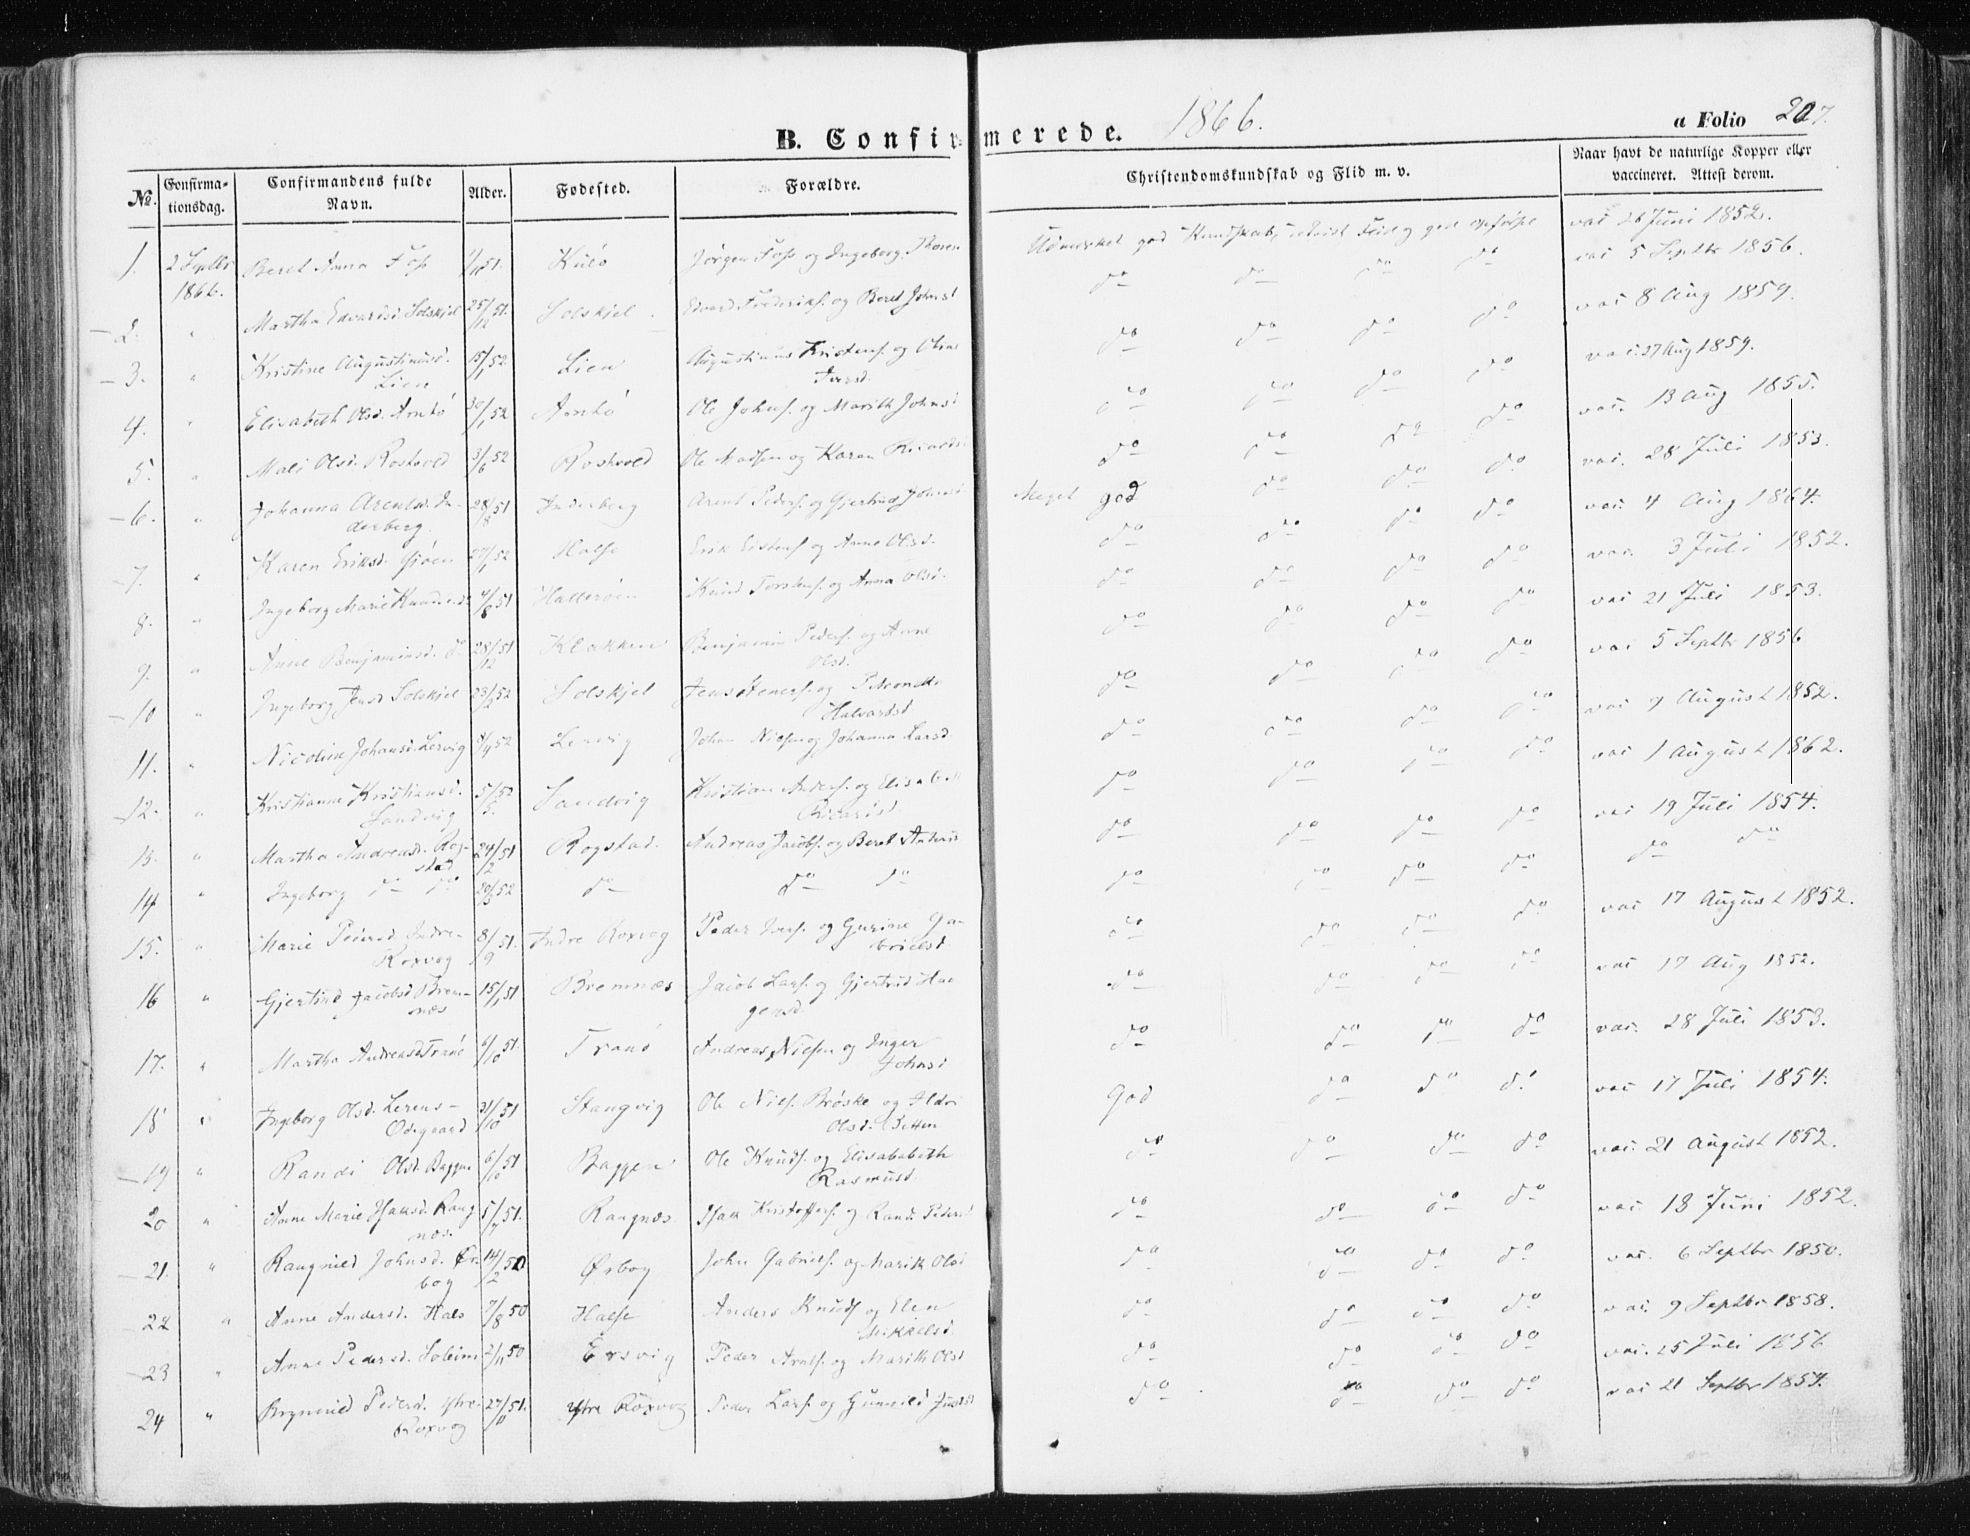 B. Confirmerede. 1866.
a Folio 207.
No. Confirmationsdag. Confirmandens fulde Navn. Alder. Fødested. Forældre. Christendomskundskab og Flid m. v. Naar havt de naturlige Kopper eller vaccineret. Attest derom.
1. 2 Septbr 1866. Beret Anna Foss 51. Kulø Jørgen Foss og Ingeborg Udmærket god Kundskab, Flid og god Opførsel vac 26 Juni 1852.
2. " Martha Edvardsd. Solskjel 25/12 51. Solskjel Edvard Frederiks. og Beret Johnsd do do do do vac 5 Septbr 1856.
3. " Kristine Augustinusd. Lien 15/1 52 Lien Augustinus Kristens. og do do do do vac 8 Aug 1859.
4. " Elisabeth Olsd. Arntø 30/1 52 Arntø Ole Johns. og Marith Johnsd do do do do vac. 27 Aug 1859.
5. " Mali Olsd. Rostvold 3/6 52 Rostvold Ole Madsen og Karen do do do do vac. 13 Aug 1855.
6. " Johanna Arentsd. Inderberg. 28/8 51 Inderberg Arent Peders. og Gjertrud Johnsd Meget god do do do vac. 28 Juli 1853.
7. " Karen Eriksd. 27/1 52 Halse Erik og Anne Olsd. do do do do vac. 4 Aug 1864.
8. " Ingeborg Marie Knudsd. 4/8 51 Hallerøen Knud Torstens. og Anna Olsd. do do do do vac. 3 Juli 1852.
9. " Anne Benjaminsd. do 28/12 51 Klakken Benjamin Peders. og Anne Olsd. do do do do vac 21 Juli 1853.
10 " Ingeborg Jensd Solskjel 23/3 52 Solskjel Jens og Petronelle Halvardsd. do do do do vac 5 Septbr 1856
11. " Nicoline Johansd. Lervig 52 Lervig Johan Nielsen og Johanna Larsd. do do do do vac 9 August 1852.
12. " Kristianne Kristiansd. Sandvig 5/5. 52 Sandvig Kristian Anders. og Elisabeth do do do do vac 1 August 1862.
13. " Martha Andreasd. Rogstad 24/2 51 Rogstad. Andreas Jacobs. og Beret do do do do vac 19 Juli 1854.
14 " Ingeborg do do 20/3 52 do do do do do do do do do
15. " Marie Pedersd. Indre-Roxvog 8/9 51. Indre Roxvog Peder Ivers. og Gurine Gabrielsd do do do do vac 17 August 1852.
16 " Gjertrud Jacobsd Bremnæs 15/1 51 Bremnæs Jacob Lars. og Gjertrud Haagensd. do do do do vac 17 Aug 1852.
17. " Martha Andreasd Tranø 6/10 51. Tranø Andreas Nielsen og Inger Johnsd do do do do vac. 28 Juli 1853.
18 " Ingeborg Olsd. Lerens-Ødegaard 31/10 51 Stangvig Ole Niels. Brøske og Olsd. God do do do vac 17 Juli 1854.
19 " Randi Olsd. Baggen 6/10 51 Baggen Ole Knuds. og Elisababeth Rasmusd. do do do do vac. 21 August 1852.
20 " Anne Marie Isaksd. Rangnæs. 5/7 51. Rangnæs. Isak Kristoffers. og Randi Pedersd do do do do vac. 18 Juni 1852.
21. " Rangnild Johnsd. Ørbog 14/2 50 Ørbog John Gabriels. og Marith Olsd do do do do vac. 6 Septbr 1850.
22 " Anne Andersd. Hals 7/8 50 Halse Anders Knuds og Elen Mikkelsd. do do do do vac. 9 Septbr 1858.
23 " Anne Pedersd. Soleim 2/11 50 Ersvig Peder og Marith Olsd do do do do vac. 25 Juli 1856
24 " Brynnild Pedersd. Ytre Roxvog 27/ 51. Ytre Roxvog Peder Lars. og Gunnild do do do do vac 21 Septbr 1854.